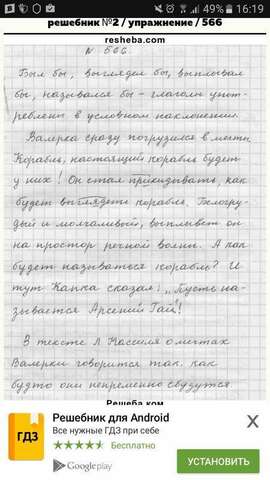 49% 16:19
решебник №2 / упражнение / 566
resheba.com
N 566.
Был бы, выглядел бы, выплывал
бы, назывался бы – глаголы упот-
реблены в условном наклонении.
Валерка сразу погрузился в мечты.
Корабль, настоящий корабль будет
у них! Он стал прикидывать, как
будет выглядеть корабль. Белогру-
дый и молчаливый, выплывет он
на простор речной волны. А как
будет называться корабль? И
тут Капка сказал: „Пусть на-
зывается Арсений Гай"!
В тексте Л. Кассиля о мечтах
Валерки говорится так, как
будто они непременно сбудутся
Решеба.ком
Решебник для Android
Все нужные ГДЗ при себе
Бесплатно
ГДЗ
Google play
УСТАНОВИТЬ